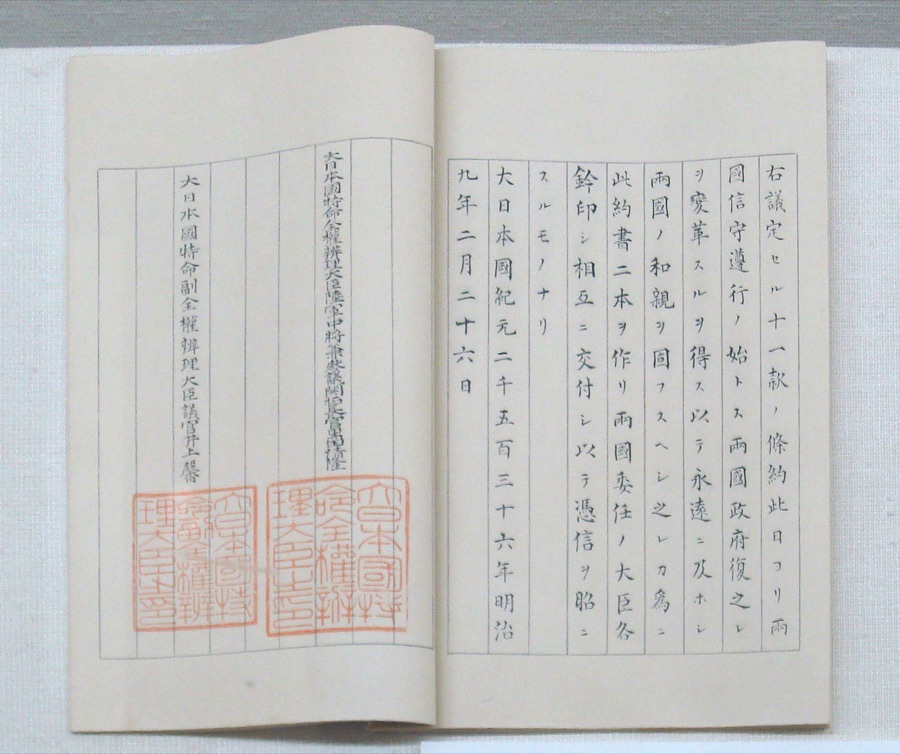 右議定セル十一款ノ條約此日ヨリ兩
國信守遵行ノ始トス兩國政府復之レ
ヲ變革スルヲ得ス以テ永遠ニ及ホシ
兩國ノ和親ヲ固フスヘシ之レカ爲ニ
此約書二本ヲ作リ兩國委任ノ大臣各
鈐印シ相互ニ交付シ以テ憑信ヲ昭ニ
スルモノナリ
大日本國紀元二千五百三十六年明治
九年二月二十六日
大日本國特命全權辨理大臣陸軍中將兼參議開拓長官黑田淸隆
大日本國特
命全權辦
理大臣之印
大日本國特命副全權辨理大臣議官井上馨
大日本國特
命副全權辦
理大臣之印